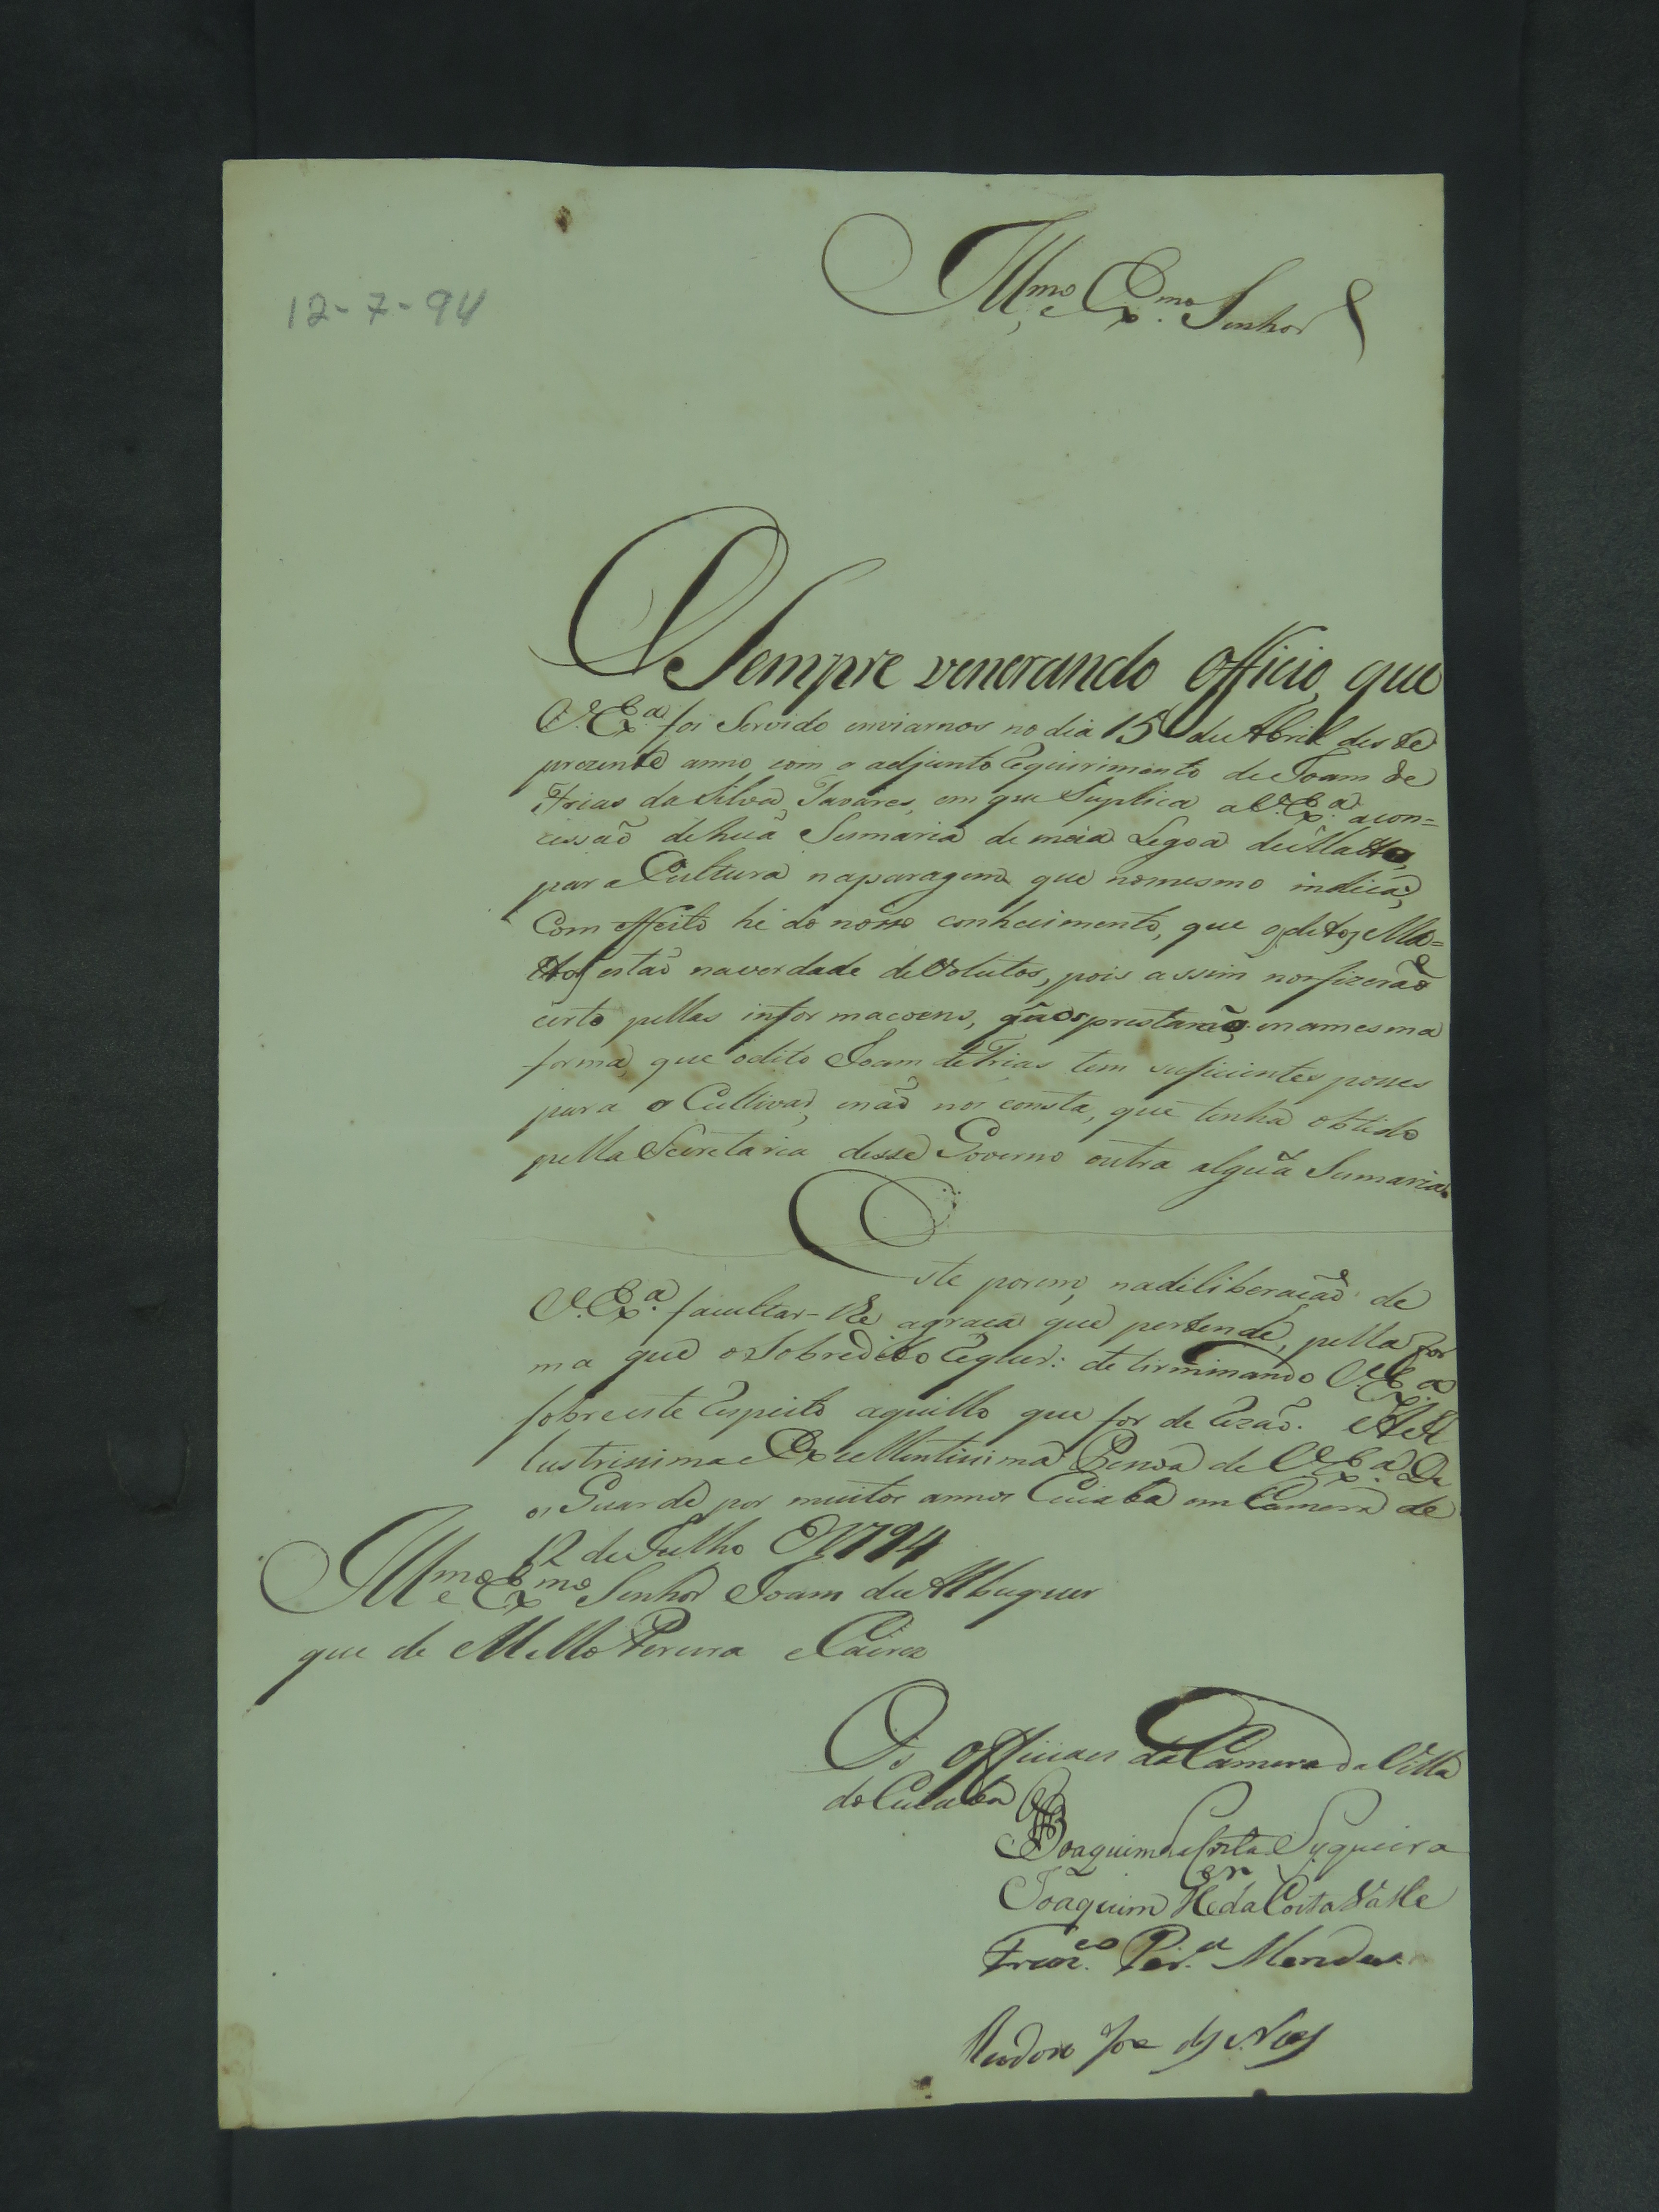 12-7-94
Ill.mo e Ex.mo Senhor
O Sempre venerando officio, que
V. Ex.a foi Servido enviarnos no dia 15 de Abril deste
prezente anno com o adjunto Requirimento de Joam de
Frias da Silva Tavares, em que Suplica a V. Ex.a a con=
cessaõ de huã Sesmaria de meia Legoa de Matto,
para Cultura na paragem que no mesmo indica;
Com effeito hé do nosso conhecimento, que os ditos Ma=
ttos estaõ na verdade devolutos, pois assim nos fizeraõ
certo pellas informacoens, prestaraõ, e na mesma
forma, que o dito Joam de Frias tem suficientes posses
para o Cultivar, e naõ nos consta, que tenha obtido
pella Secretaria desse Governo outra alguã Sumaria.
Este porem, na diliberaçaõ de
V. Ex.a facultar-lhe a graca que pertende, pella for
ma que o Sobredito Requer: detirminando V. Ex.a
sobre este Respeito aquillo que for de Rezaõ. A Il
lustrissima e Excellentissima Pessoa de V. Ex.a De
os Guarde por muitos annos Cuiaba em Camera de
12 de Julho de 1794
Ill.mo e Ex.mo Senhor Joam de Albuquer
que de Mello Pereira e Caceres
Os Officiaes da Camera da Villa
do Cuiaba
Joaquim da Costa Syqueira
Joaquim da Costa Valle
Fran.co Per.a Mendes